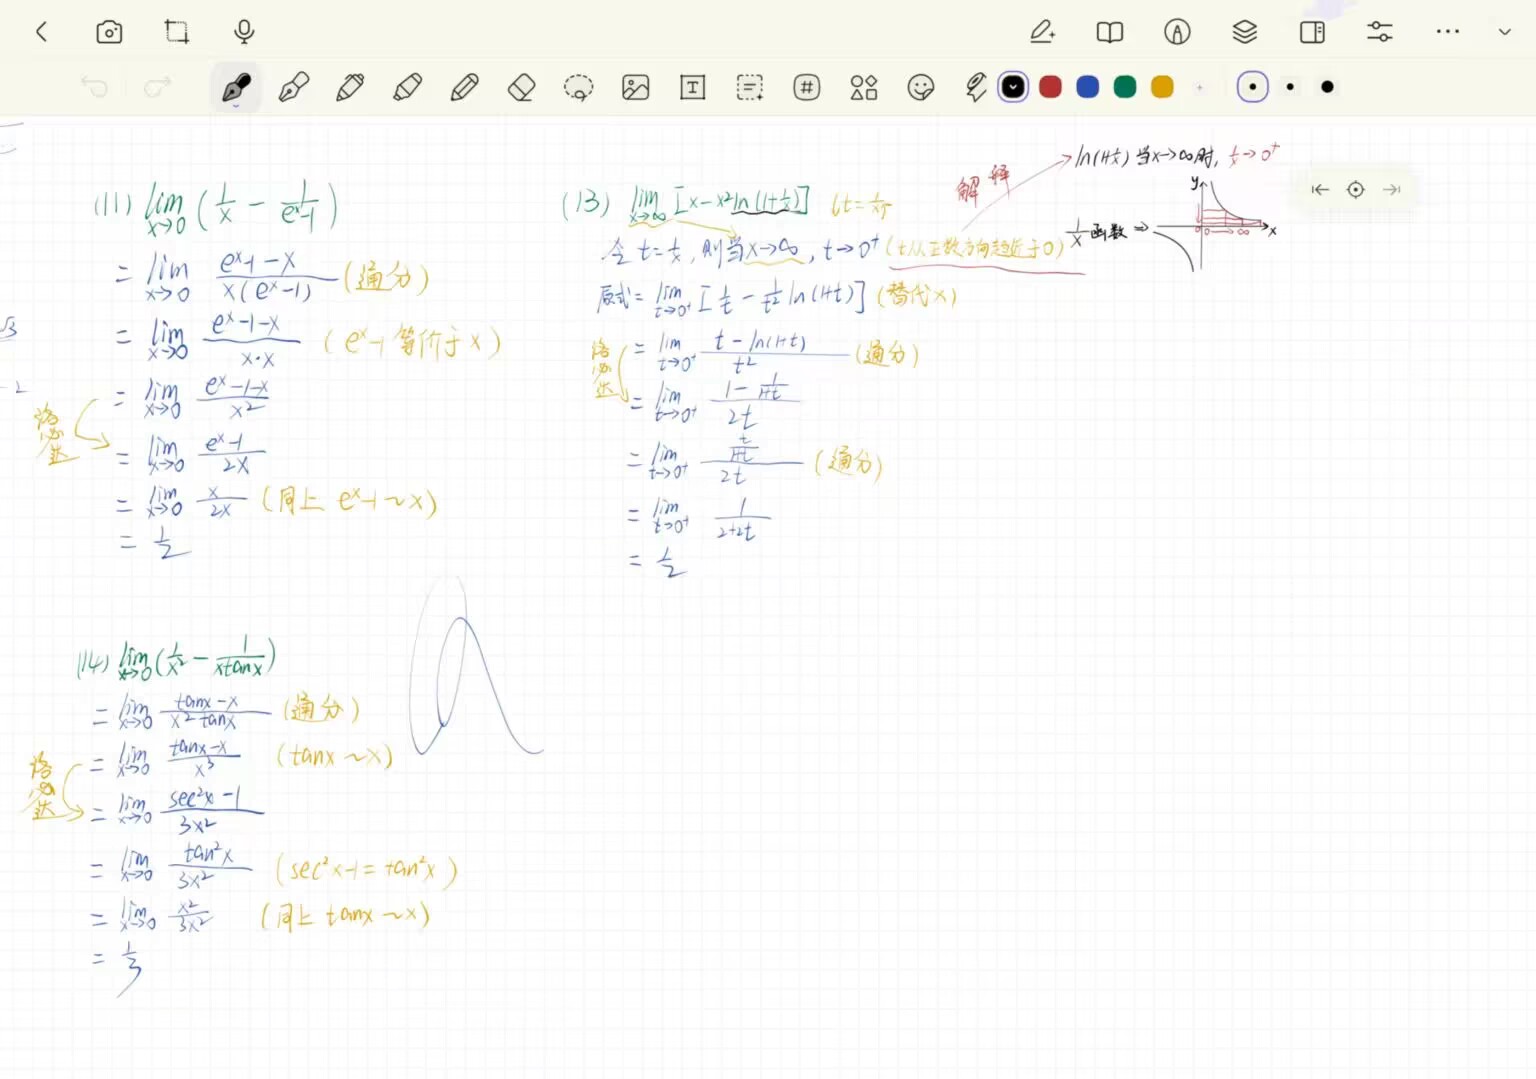 (11) lim x→0 (1/x − 1/(eˣ−1))
= lim x→0 (eˣ−1−x)/(x(eˣ−1)) (通分)
= lim x→0 (eˣ−1−x)/(x·x) (eˣ−1 等价于 x)
= lim x→0 (eˣ−1−x)/x²
洛必达
= lim x→0 (eˣ−1)/2x
= lim x→0 x/2x (同上 eˣ−1~x)
= 1/2
(13) lim x→∞ [x−x²ln(1+1/x)]
令 t=1/x, 则当x→∞, t→0⁺ (t从正数方向趋近于0)
原式= lim t→0⁺ [1/t − 1/t² ln(1+t)] (替代x)
= lim t→0⁺ (t−ln(1+t))/t² (通分)
洛必达
= lim t→0⁺ (1−1/(1+t))/2t
= lim t→0⁺ (t/(1+t))/2t (通分)
= lim t→0⁺ 1/(2+2t)
= 1/2
解释
ln(1+1/x) 当x→∞时, 1/x→0⁺
1/x 函数 ⇒
y
x
0
0
∞
(14) lim x→0 (1/x² − 1/(xtanx))
= lim x→0 (tanx−x)/(x²tanx) (通分)
= lim x→0 (tanx−x)/x³ (tanx~x)
洛必达
= lim x→0 (sec²x−1)/3x²
= lim x→0 tan²x/3x² (sec²x−1=tan²x)
= lim x→0 x²/3x² (同上 tanx~x)
= 1/3